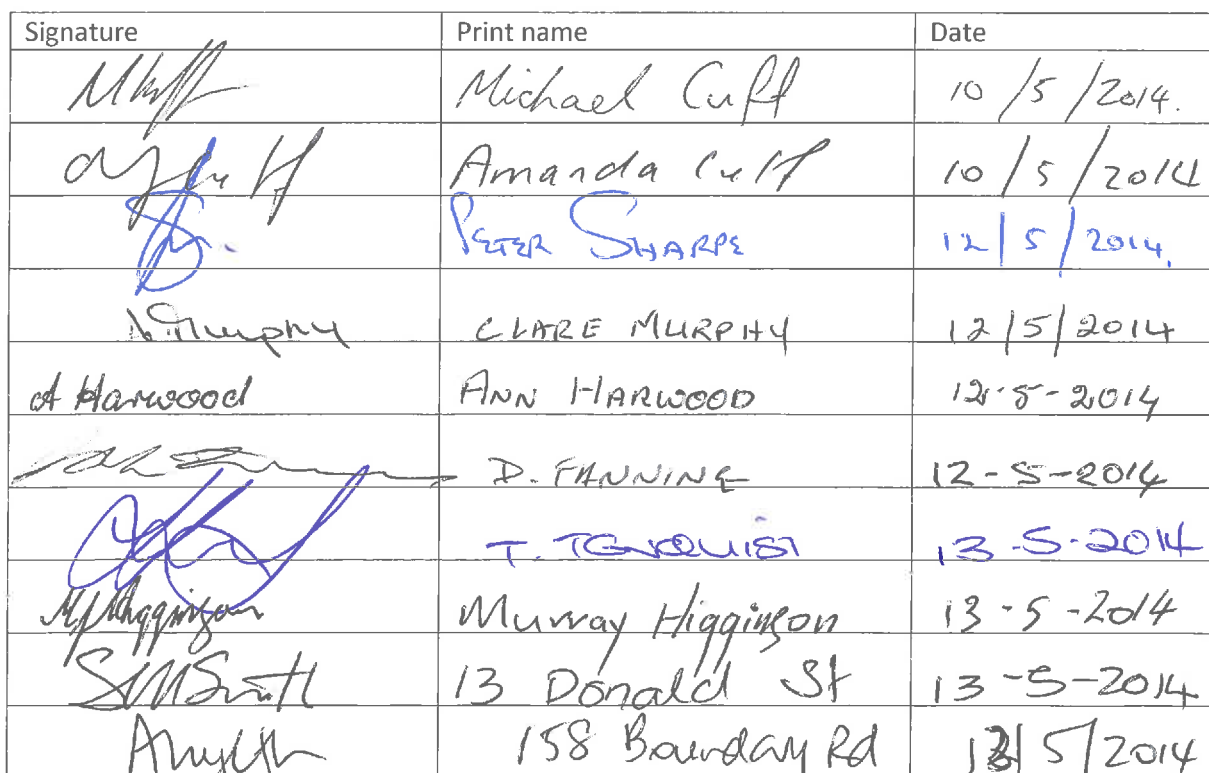 Signature Print name Date
Michael Cuff 10/5/2014.
Amanda Cuff 10/5/2014
PETER SHARPE 12/5/2014.
Murphy CLARE MURPHY 12/5/2014
A Harwood ANN HARWOOD 12-5-2014
D. FANNING 12-5-2014
T. 13-5-2014
Higginson Murray Higginson 13-5-2014
SMSmith 13 Donald St 13-5-2014
158 Boundary Rd 5/2014